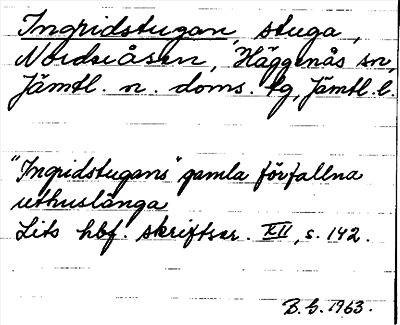 Ingridstugan, stuga,
Nordseåsen, Häggenås sn,
Jämtl. n. doms. tg, Jämtl. l.
"Ingridstugans" gamla förfallna
uthuslänga
Lits hbf. skriftser. XII, s. 142.
B. G. 1963.